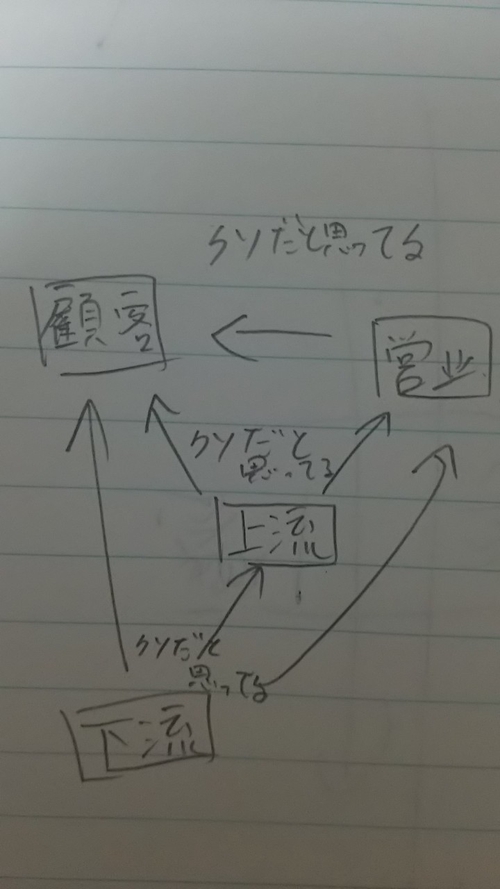 クソだと思ってる
顧客
営业
クソだと
思ってる
上流
クソだと
思ってる
下流